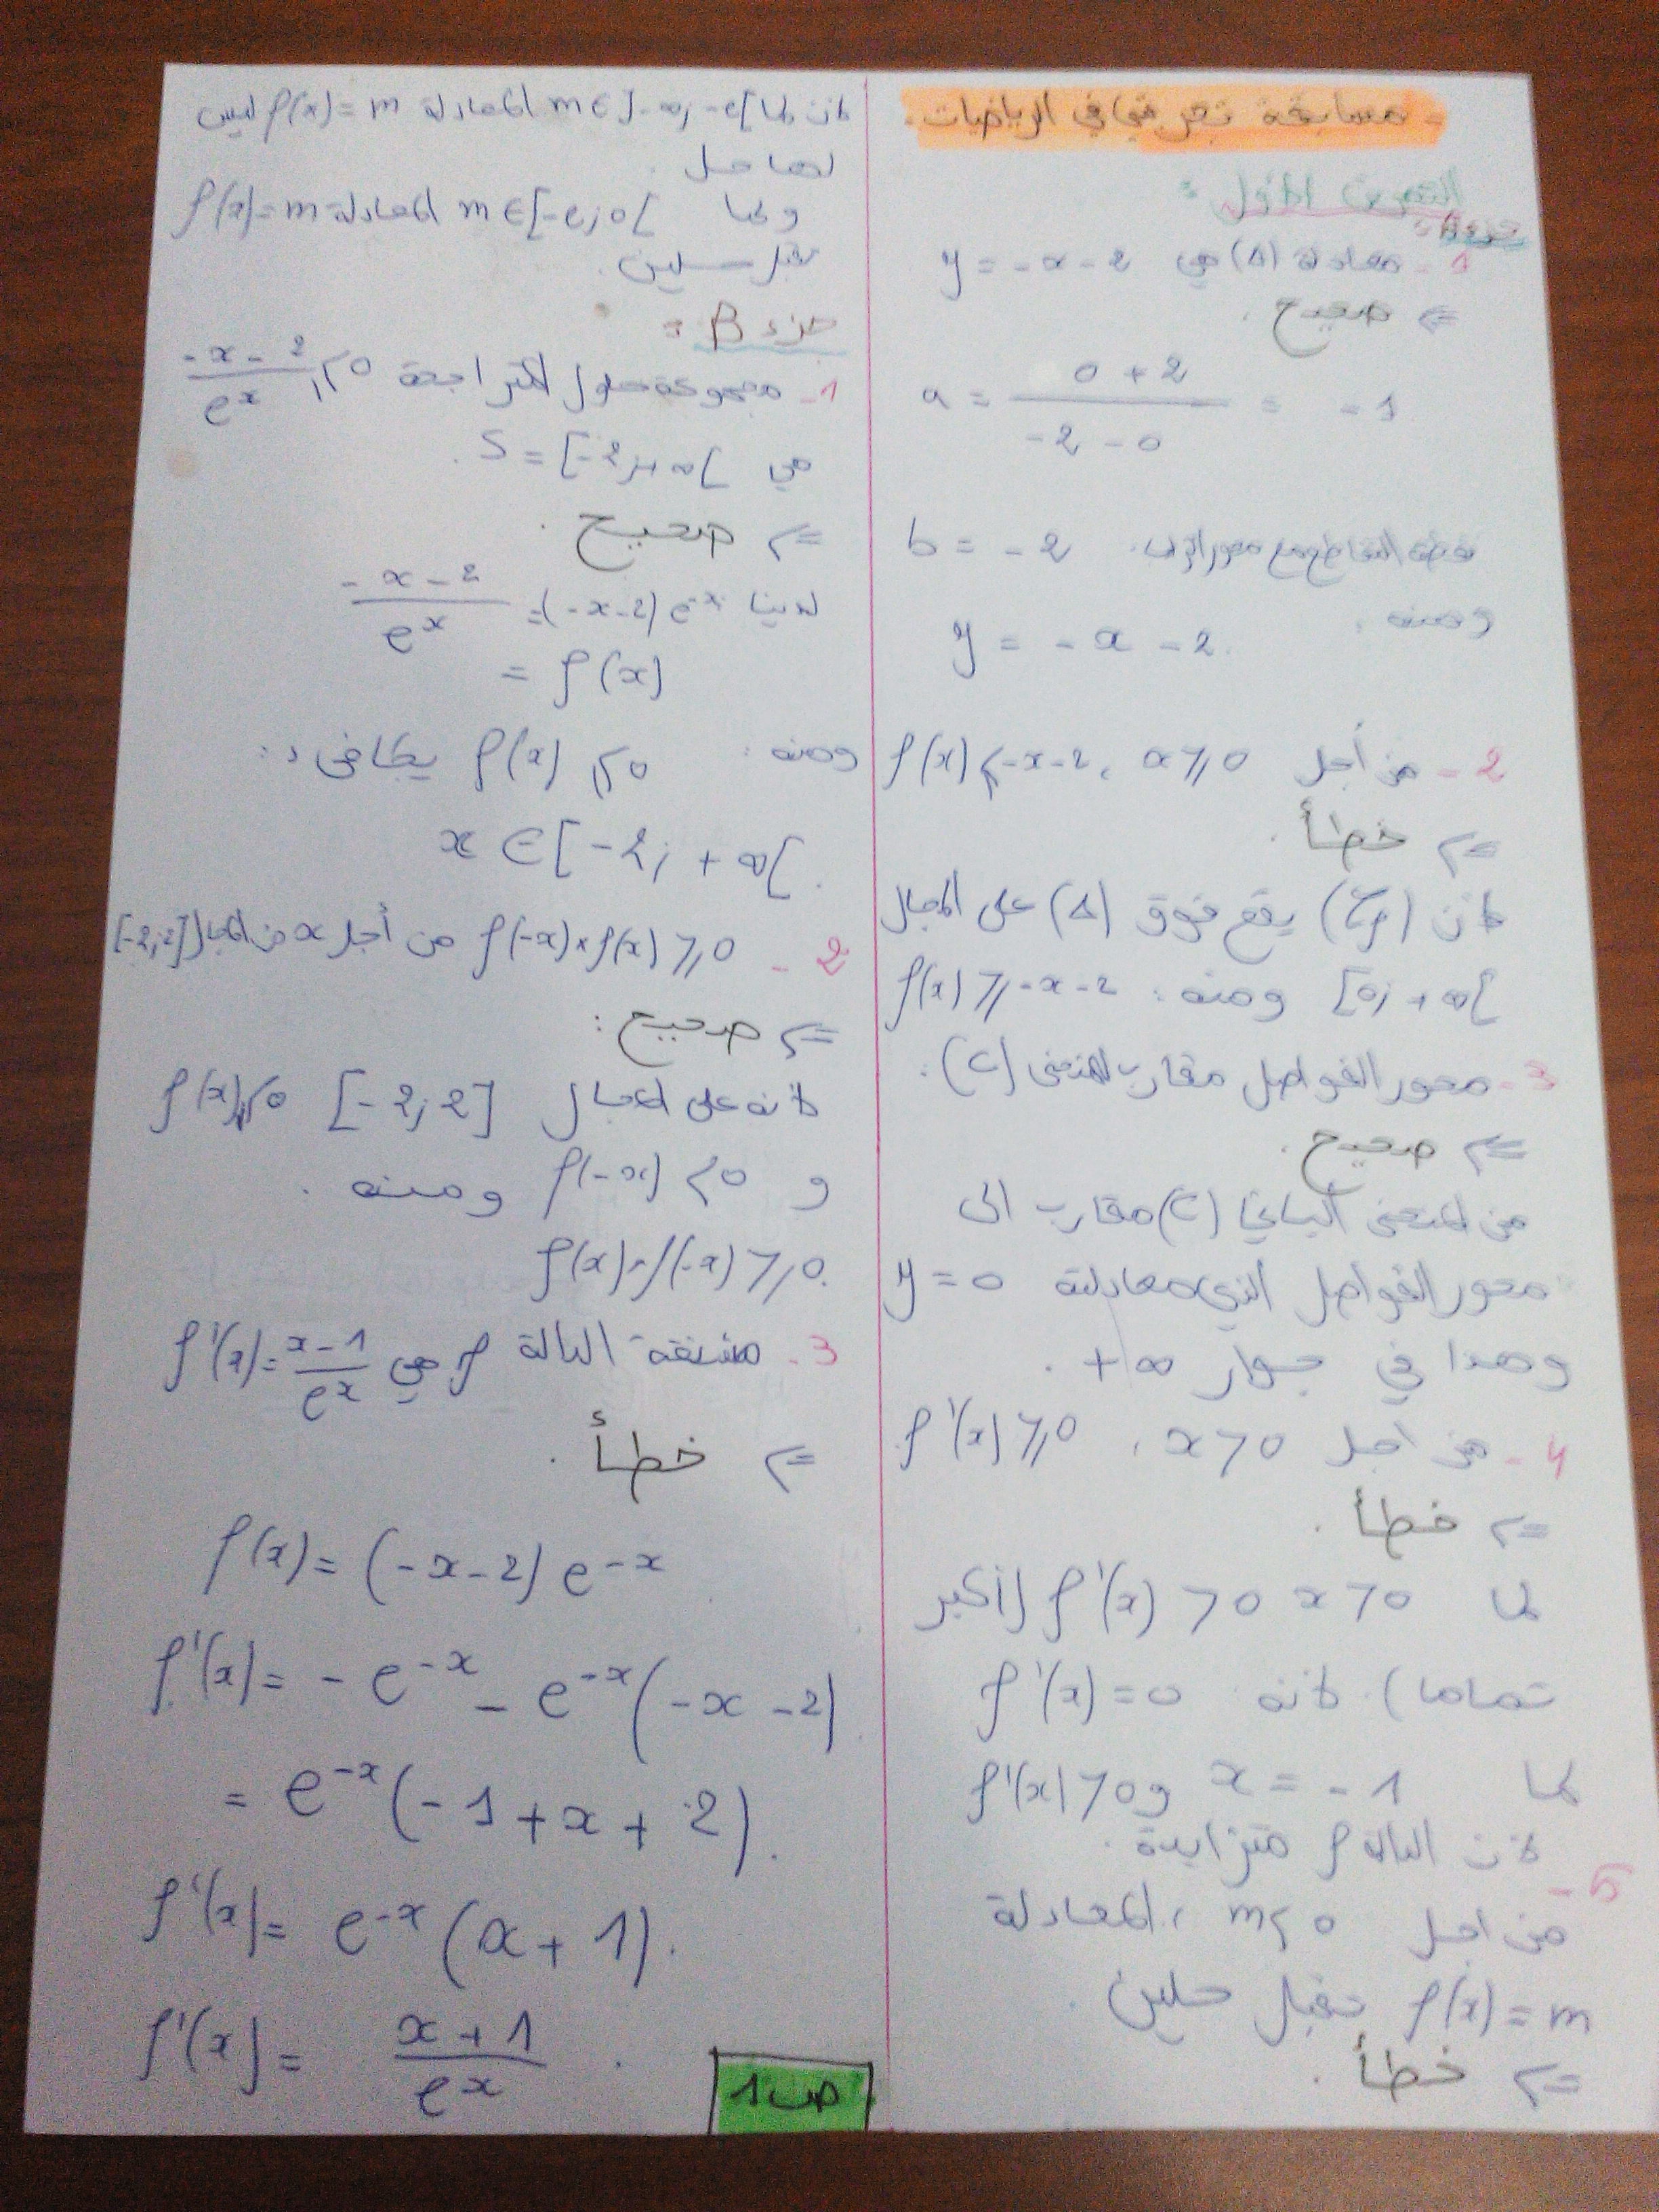 - مسابقة تجريبية في الرياضيات -
التمرين الأول :
جزء A :
1 - معادلة (Δ) هي y = -x - 2
⇐ صحيح .
a = (0 + 2)/(-2 - 0) = -1
نقطة التقاطع مع محور b = -2
ومنه :
y = -x - 2.
2 - من أجل x ≥ 0 ، f(x) ≤ -x-2
⇐ خطأ .
لأن (Cf) يقع فوق (Δ) على المجال
[0; +∞[ ومنه : f(x) ≥ -x-2
3 - محور الفواصل مقارب للمنحنى (C) :
⇐ صحيح .
من المنحنى البياني (C) مقارب الى
محور الفواصل الذي معادلته y = 0
وهذا في جوار +∞ .
4 - من اجل x > 0 ، f'(x) ≥ 0
⇐ خطأ .
لما x > 0 f'(x) > 0 (أكبر
تماما) لأنه f'(x) = 0
لما x = -1 و f'(x) > 0
لأن الدالة f متزايدة .
5 -
من اجل m ≤ 0 ، المعادلة
f(x) = m تقبل حلين .
⇐ خطأ .
لأن لما m ∈ ]-∞; -e[ المعادلة f(x) = m ليس
لها حل .
ولما m ∈ [-e; 0[ المعادلة f(x) = m
تقبل حلين .
جزء B :
1 - مجموعة حلول المتراجحة (-x-2)/e^x ≤ 0
هي S = [-2; +∞[ .
⇐ صحيح .
لدينا (-x-2)/e^x = (-x-2) e^-x
= f(x)
ومنه : f(x) ≤ 0 يكافئ :
x ∈ [-2; +∞[ .
2 - f(-x) × f(x) ≥ 0 من أجل x من المجال [-2; 2]
⇐ صحيح :
لأنه على المجال [-2; 2] f(x) ≤ 0
و f(-x) ≤ 0 ومنه .
f(x) × f(-x) ≥ 0.
3 - مشتقة الدالة f هي f'(x) = (x-1)/e^x
⇐ خطأ .
f(x) = (-x-2) e^-x
f'(x) = -e^-x - e^-x (-x-2)
= e^-x (-1 + x + 2).
f'(x) = e^-x (x + 1).
f'(x) = (x+1)/e^x .
ص 1